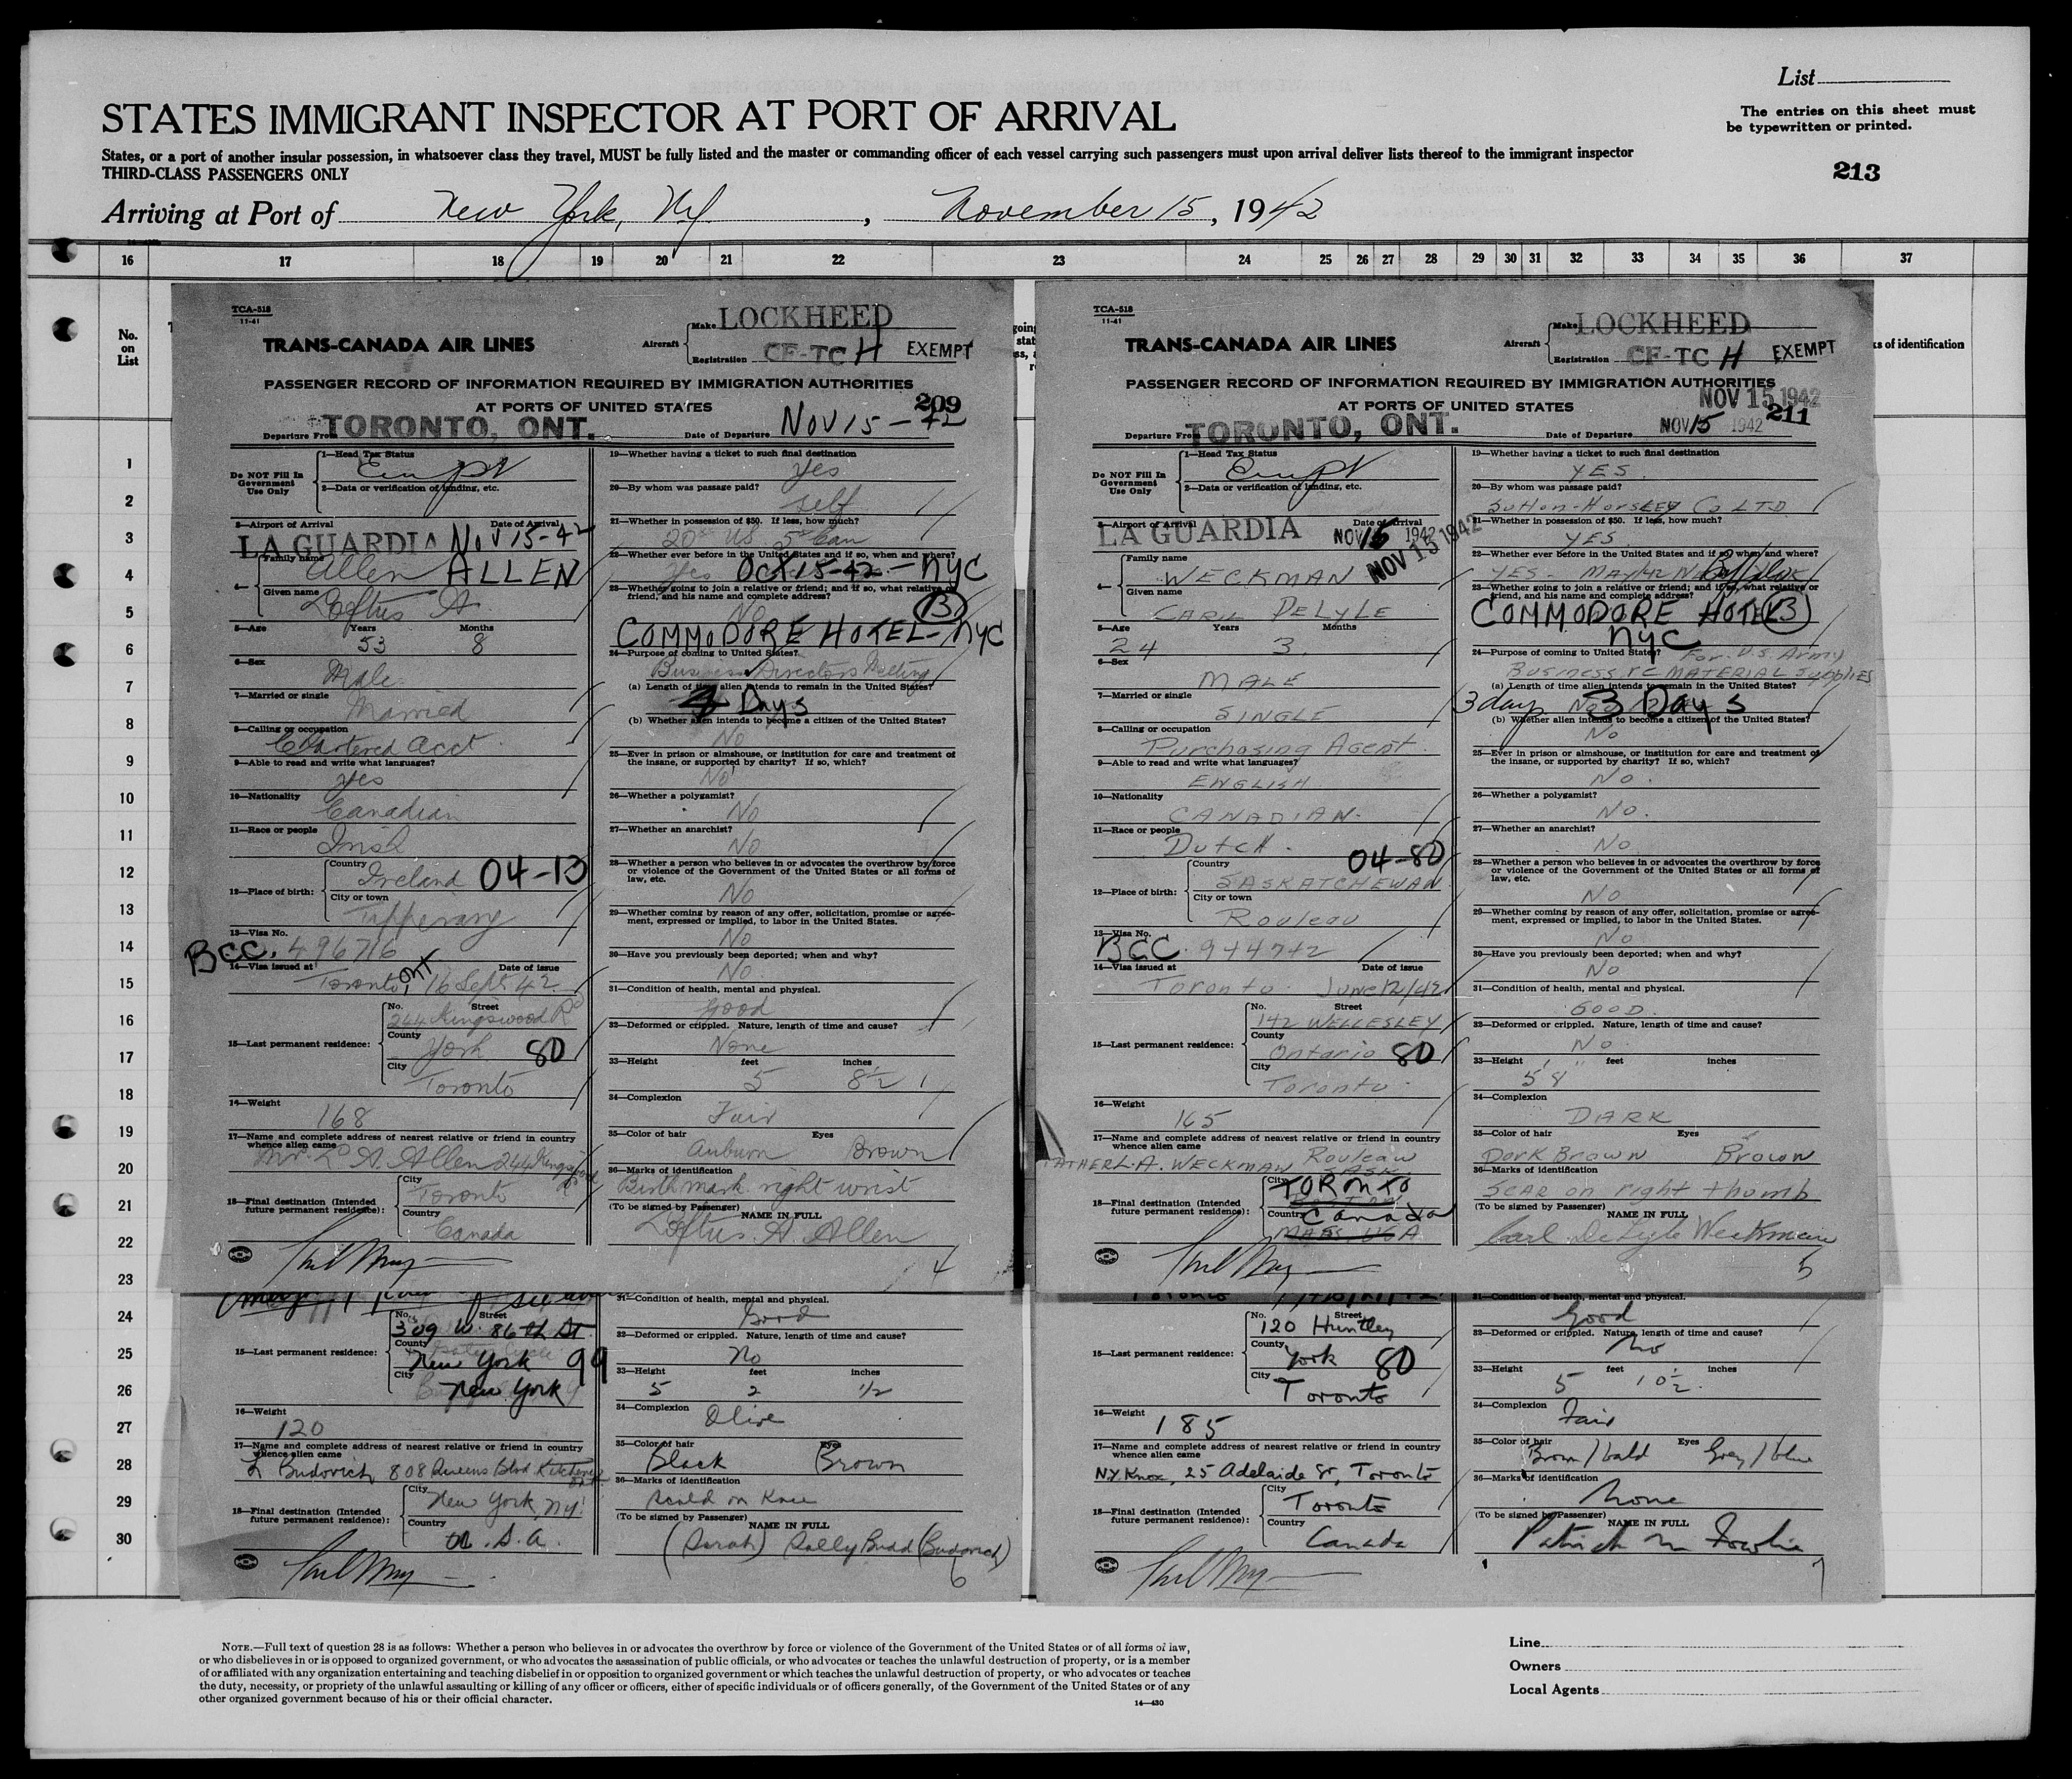 List
STATES IMMIGRANT INSPECTOR AT PORT OF ARRIVAL
The entries on this sheet must
be typewritten or printed.
States, or a port of another insular possession, in whatsoever class they travel, MUST be fully listed and the master or commanding officer of each vessel carrying such passengers must upon arrival deliver lists thereof to the immigrant inspector
THIRD-CLASS PASSENGERS ONLY
213
Arriving at Port of New York, NY. , November 15, 1942
16 17 18 19 20 21 22 23 24 25 26 27 28 29 30 31 32 33 34 35 36 37
No.
on
List
ks of identification
1
2
3
4
5
6
7
8
9
10
11
12
13
14
15
16
17
18
19
20
21
22
23
24
25
26
27
28
29
30
TCA-518
11-41
TRANS-CANADA AIR LINES
Aircraft
Make LOCKHEED
Registration CF-TC H EXEMPT
PASSENGER RECORD OF INFORMATION REQUIRED BY IMMIGRATION AUTHORITIES
AT PORTS OF UNITED STATES
209
Departure From TORONTO, ONT. Date of Departure NOV 15-42
Do NOT Fill In
Government
Use Only
1—Head Tax Status
2—Data or verification of landing, etc.
3—Airport of Arrival Date of Arrival
LA GUARDIA NOV 15-42
4— Family name
Allen ALLEN
Given name
Loftus A.
5—Age Years Months
53 8
6—Sex
Male
7—Married or single
Married
8—Calling or occupation
Chartered Acct
9—Able to read and write what languages?
yes
10—Nationality
Canadian
11—Race or people
Irish
12—Place of birth:
Country
Ireland 04-13
City or town
Tipperary
13—Visa No.
BCC. 496716
14—Visa issued at Date of issue
Toronto, Ont 16 Sept 42
15—Last permanent residence:
No. Street
244 Kingswood Rd
County
York 80
City
Toronto
16—Weight
168
17—Name and complete address of nearest relative or friend in country
whence alien came
A. Allen 244 Kingswood
18—Final destination (Intended
future permanent residence):
City
Toronto
Country
Canada
19—Whether having a ticket to such final destination
yes
20—By whom was passage paid?
self
21—Whether in possession of $50. If less, how much?
20 US 5 Can
22—Whether ever before in the United States and if so, when and where?
yes Oct 15-42-NYC
23—Whether going to join a relative or friend; and if so, what relative or
friend, and his name and complete address?
No B
COMMODORE HOTEL-NYC
24—Purpose of coming to United States?
Business Directors Meeting
(a) Length of time alien intends to remain in the United States?
Days
(b) Whether alien intends to become a citizen of the United States?
No
25—Ever in prison or almshouse, or institution for care and treatment of
the insane, or supported by charity? If so, which?
No
26—Whether a polygamist?
No
27—Whether an anarchist?
No
28—Whether a person who believes in or advocates the overthrow by force
or violence of the Government of the United States or all forms of
law, etc.
No
29—Whether coming by reason of any offer, solicitation, promise or agree-
ment, expressed or implied, to labor in the United States.
No
30—Have you previously been deported; when and why?
No
31—Condition of health, mental and physical.
Good
32—Deformed or crippled. Nature, length of time and cause?
None
33—Height feet inches
5 8½
34—Complexion
Fair
35—Color of hair Eyes
Auburn Brown
36—Marks of identification
Birth mark right wrist
(To be signed by Passenger) NAME IN FULL
Loftus. A. Allen
4
TCA-518
11-41
TRANS-CANADA AIR LINES
Aircraft
Make LOCKHEED
Registration CF-TC H EXEMPT
PASSENGER RECORD OF INFORMATION REQUIRED BY IMMIGRATION AUTHORITIES
AT PORTS OF UNITED STATES
NOV 15 1942
211
Departure From TORONTO, ONT. Date of Departure NOV 15 1942
Do NOT Fill In
Government
Use Only
1—Head Tax Status
2—Data or verification of landing, etc.
3—Airport of Arrival Date of Arrival
LA GUARDIA NOV 15 1942
NOV 15 1942
4— Family name
WECKMAN
Given name
CARL DELYLE
5—Age Years Months
24 3
6—Sex
MALE
7—Married or single
SINGLE
8—Calling or occupation
Purchasing Agent
9—Able to read and write what languages?
ENGLISH
10—Nationality
CANADIAN.
11—Race or people
Dutch.
12—Place of birth:
Country
04-80
SASKATCHEWAN
City or town
Rouleau
13—Visa No.
BCC. 944742
14—Visa issued at Date of issue
Toronto June 12/42
15—Last permanent residence:
No. Street
142 WELLESLEY
County
Ontario 80
City
Toronto
16—Weight
165
17—Name and complete address of nearest relative or friend in country
whence alien came
FATHER L.A. WECKMAN Rouleau
SASK.
18—Final destination (Intended
future permanent residence):
City
TORONTO
Country
Canada
MASS USA
19—Whether having a ticket to such final destination
YES
20—By whom was passage paid?
Sutton-Horsley Co LTD
21—Whether in possession of $50. If less, how much?
YES
22—Whether ever before in the United States and if so, when and where?
YES - May/42
23—Whether going to join a relative or friend; and if so, what relative or
friend, and his name and complete address?
COMMODORE HOTEL B
NYC
24—Purpose of coming to United States? For U.S. Army
BUSINESS re MATERIAL Supplies
(a) Length of time alien intends to remain in the United States?
3 days 3 Days
(b) Whether alien intends to become a citizen of the United States?
No
25—Ever in prison or almshouse, or institution for care and treatment of
the insane, or supported by charity? If so, which?
No.
26—Whether a polygamist?
No.
27—Whether an anarchist?
No
28—Whether a person who believes in or advocates the overthrow by force
or violence of the Government of the United States or all forms of
law, etc.
No
29—Whether coming by reason of any offer, solicitation, promise or agree-
ment, expressed or implied, to labor in the United States.
No
30—Have you previously been deported; when and why?
No
31—Condition of health, mental and physical.
GOOD.
32—Deformed or crippled. Nature, length of time and cause?
No.
33—Height feet inches
5' 8"
34—Complexion
DARK
35—Color of hair Eyes
Dark Brown Brown
36—Marks of identification
SCAR on right thumb
(To be signed by Passenger) NAME IN FULL
Carl DeLyle Weckman
5
15—Last permanent residence:
No. Street
309 W. 86th St.
County
New York 99
City
New York
16—Weight
120
17—Name and complete address of nearest relative or friend in country
whence alien came
Budovich 808 Queens Blvd Kitchener
Ont.
18—Final destination (Intended
future permanent residence):
City
New York, NY.
Country
U.S.A.
31—Condition of health, mental and physical.
Good
32—Deformed or crippled. Nature, length of time and cause?
No
33—Height feet inches
5 2 ½
34—Complexion
Olive
35—Color of hair Eyes
Black Brown
36—Marks of identification
Scald on Knee
(To be signed by Passenger) NAME IN FULL
(Sarah) Sally Budd (Budovich)
6
15—Last permanent residence:
No. Street
120 Huntley
County
York 80
City
Toronto
16—Weight
185
17—Name and complete address of nearest relative or friend in country
whence alien came
N.Y. Knox, 25 Adelaide St, Toronto
18—Final destination (Intended
future permanent residence):
City
Toronto
Country
Canada
31—Condition of health, mental and physical.
Good
32—Deformed or crippled. Nature, length of time and cause?
No
33—Height feet inches
5 10½
34—Complexion
Fair
35—Color of hair Eyes
Brown/bald Grey/blue
36—Marks of identification
None
(To be signed by Passenger) NAME IN FULL
Patrick
7
NOTE.—Full text of question 28 is as follows: Whether a person who believes in or advocates the overthrow by force or violence of the Government of the United States or of all forms of law,
or who disbelieves in or is opposed to organized government, or who advocates the assassination of public officials, or who advocates or teaches the unlawful destruction of property, or is a member
of or affiliated with any organization entertaining and teaching disbelief in or opposition to organized government or which teaches the unlawful destruction of property, or who advocates or teaches
the duty, necessity, or propriety of the unlawful assaulting or killing of any officer or officers, either of specific individuals or of officers generally, of the Government of the United States or of any
other organized government because of his or their official character.
14—430
Line
Owners
Local Agents